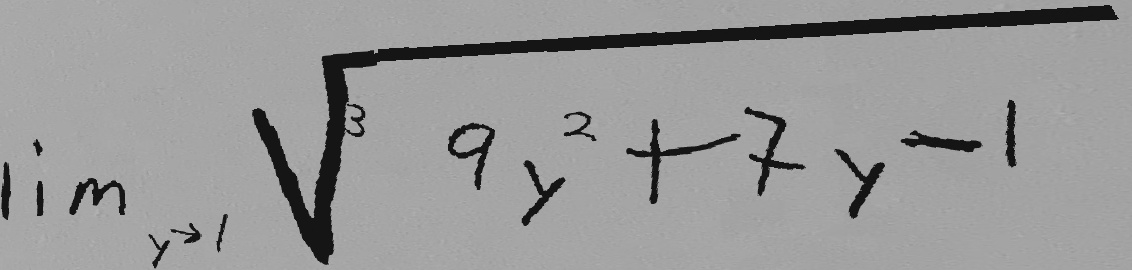 lim y→1 √3 9y² + 7y − 1